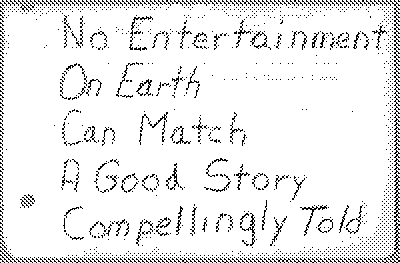 No Entertainment
On Earth
Can Match
A Good Story
Compellingly Told